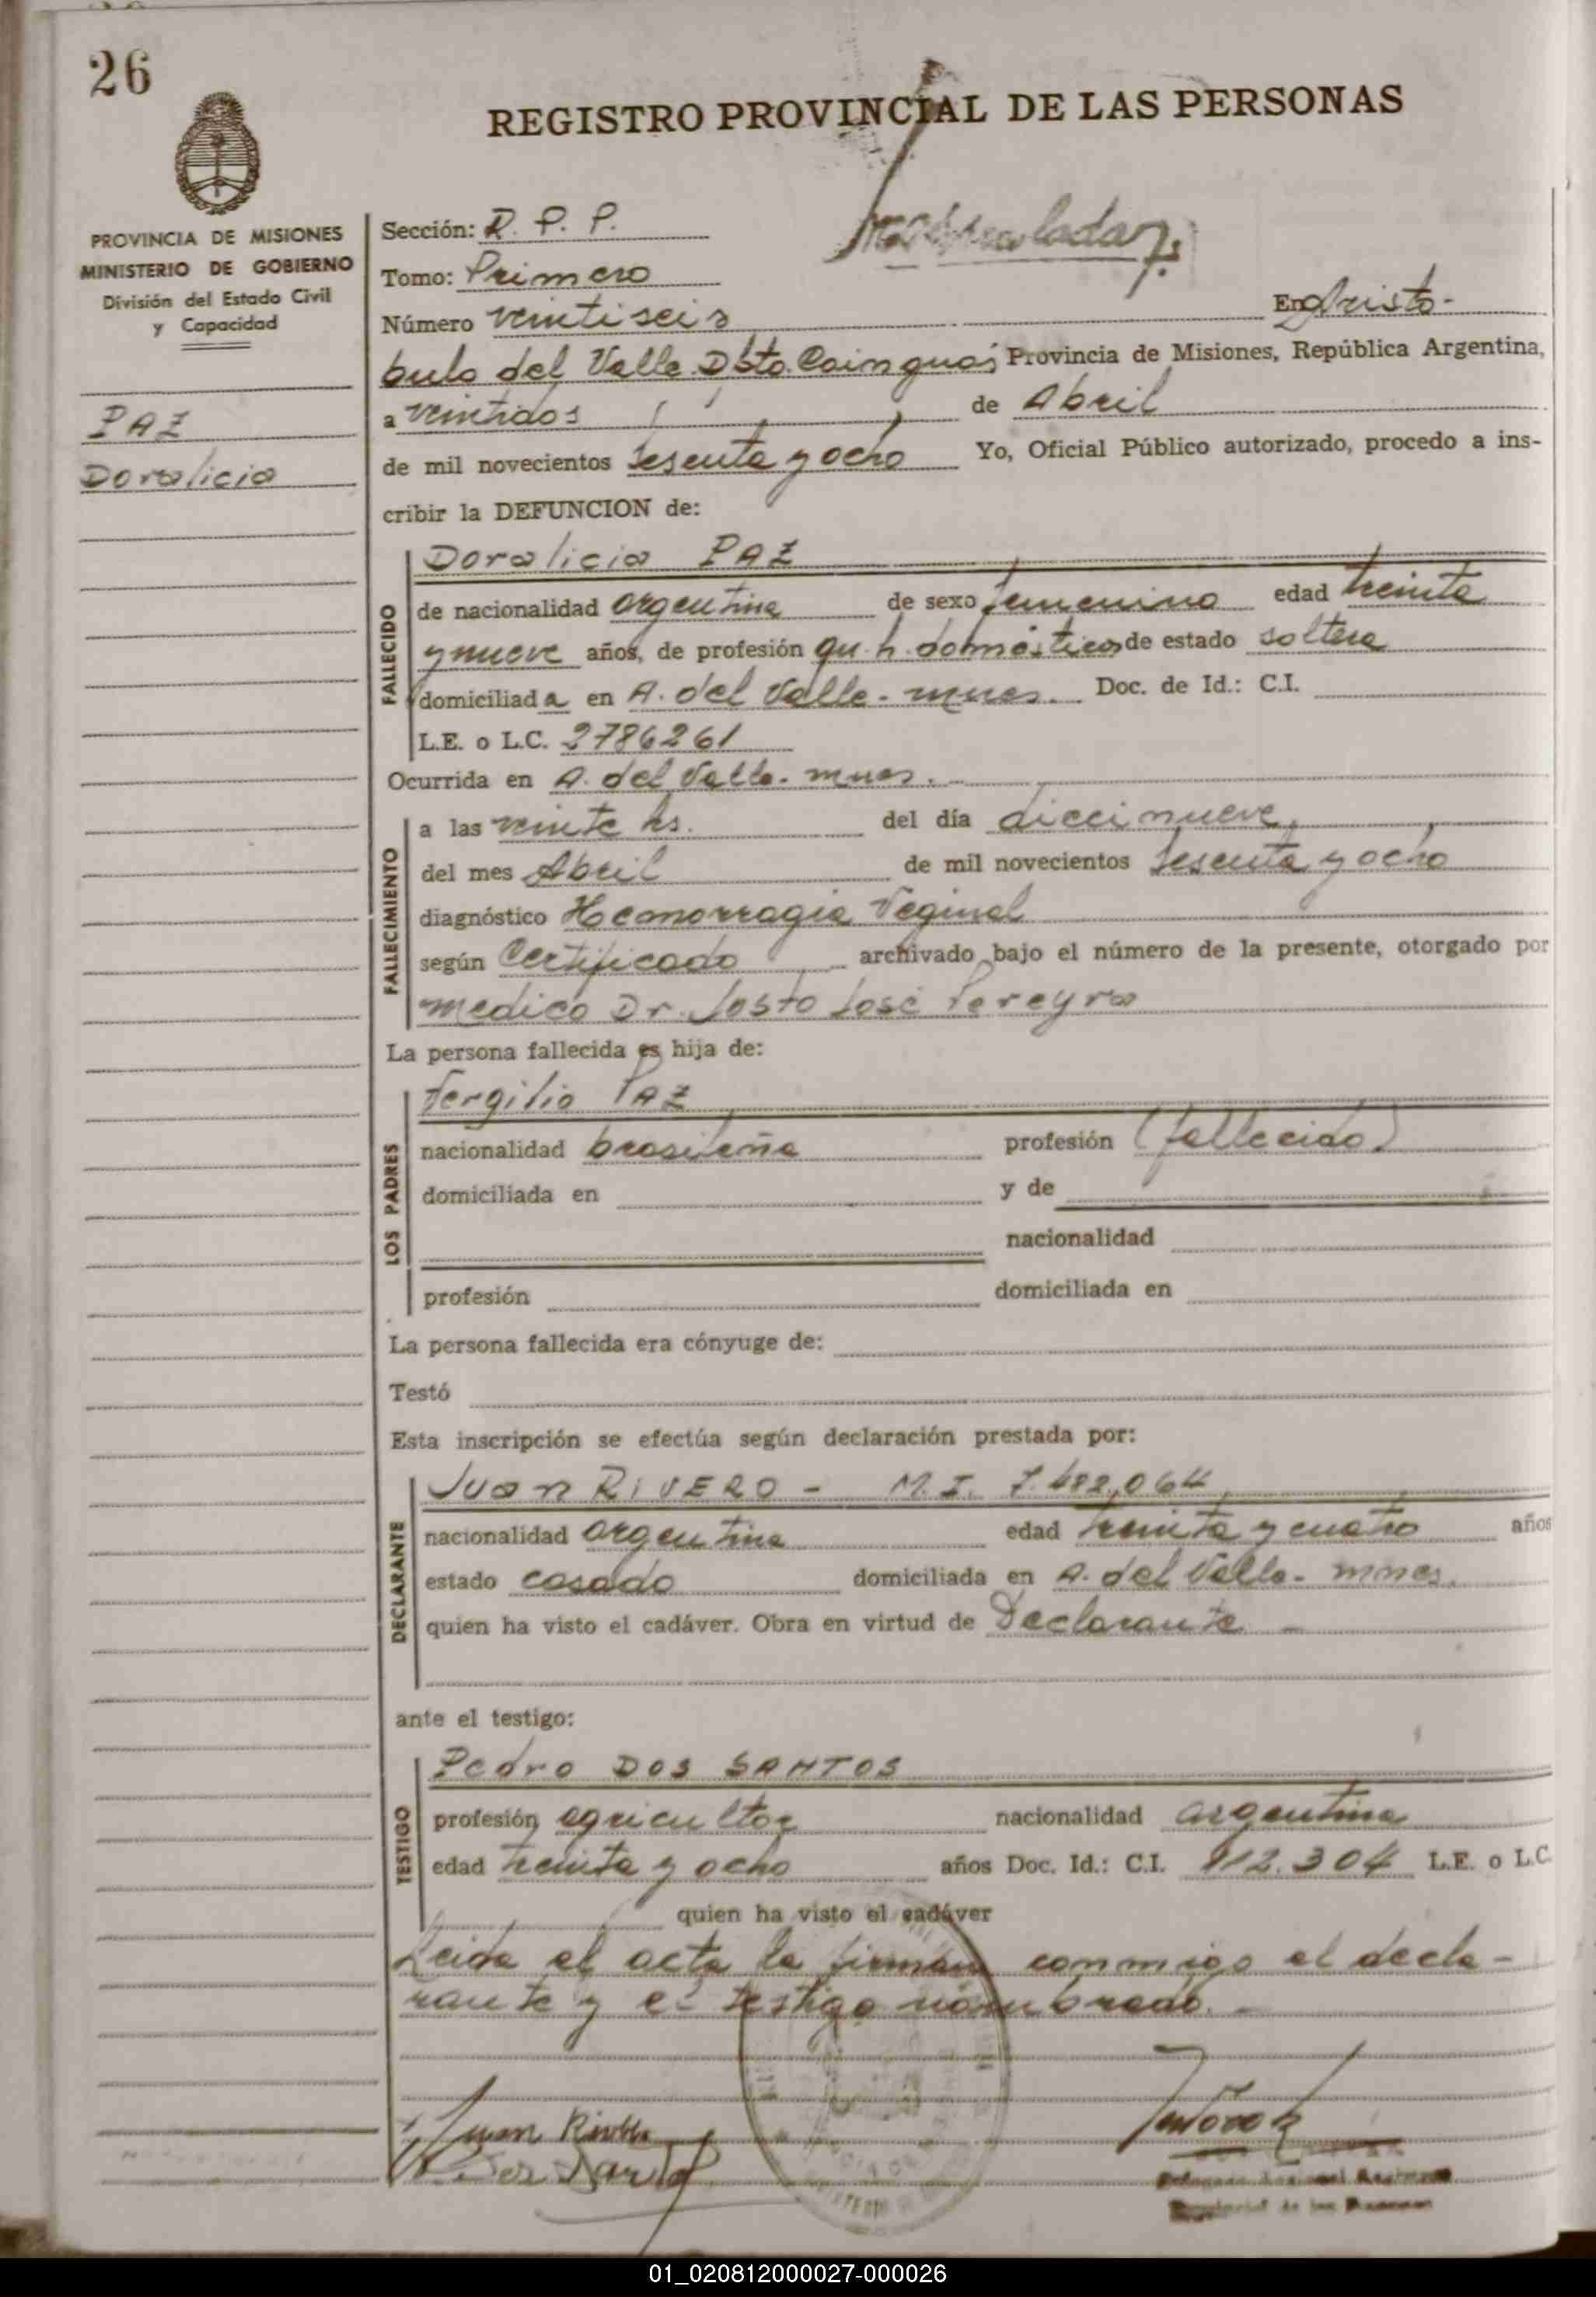 26
REGISTRO PROVINCIAL DE LAS PERSONAS
PROVINCIA DE MISIONES
MINISTERIO DE GOBIERNO
División del Estado Civil
y Capacidad
PAZ
Doralicia
Sección: R. P. P.
Tomo: Primero
Número veintiseis En Aristo-
bulo del Valle Dpto. Cainguás Provincia de Misiones, República Argentina,
a veintidos de Abril
de mil novecientos sesenta y ocho Yo, Oficial Público autorizado, procedo a ins-
cribir la DEFUNCION de:
FALLECIDO
Doralicia PAZ
de nacionalidad argentina de sexo femenino edad treinta
y nueve años, de profesión qu. h. domésticos de estado soltera
domiciliada en A. del Valle - mnes. Doc. de Id.: C.I.
L.E. o L.C. 2786261
Ocurrida en A. del Valle - mnes.
FALLECIMIENTO
a las veinte hs. del día diecinueve
del mes Abril de mil novecientos sesenta y ocho
diagnóstico Hemorragia Veginal
según Certificado archivado bajo el número de la presente, otorgado por
medico Dr. Josto José Pereyra
La persona fallecida es hija de:
LOS PADRES
Fergilio PAZ
nacionalidad brasileña profesión (fallecido)
domiciliada en y de
nacionalidad
profesión domiciliada en
La persona fallecida era cónyuge de:
Testó
Esta inscripción se efectúa según declaración prestada por:
DECLARANTE
Juan RIVERO - M.I. 7.482.064
nacionalidad argentina edad treinta y cuatro años
estado casado domiciliada en A. del Valle - mnes.
quien ha visto el cadáver. Obra en virtud de Declarante -
ante el testigo:
TESTIGO
Pedro DOS SANTOS
profesión agricultor nacionalidad argentina
edad treinta y ocho años Doc. Id.: C.I. 112.304 L.E. o L.C.
quien ha visto el cadáver
Leida el acta la firman conmigo el decla-
rante y el testigo nombrado. -
Juan
Dos Santos
Provincial de las Personas
01_020812000027-000026